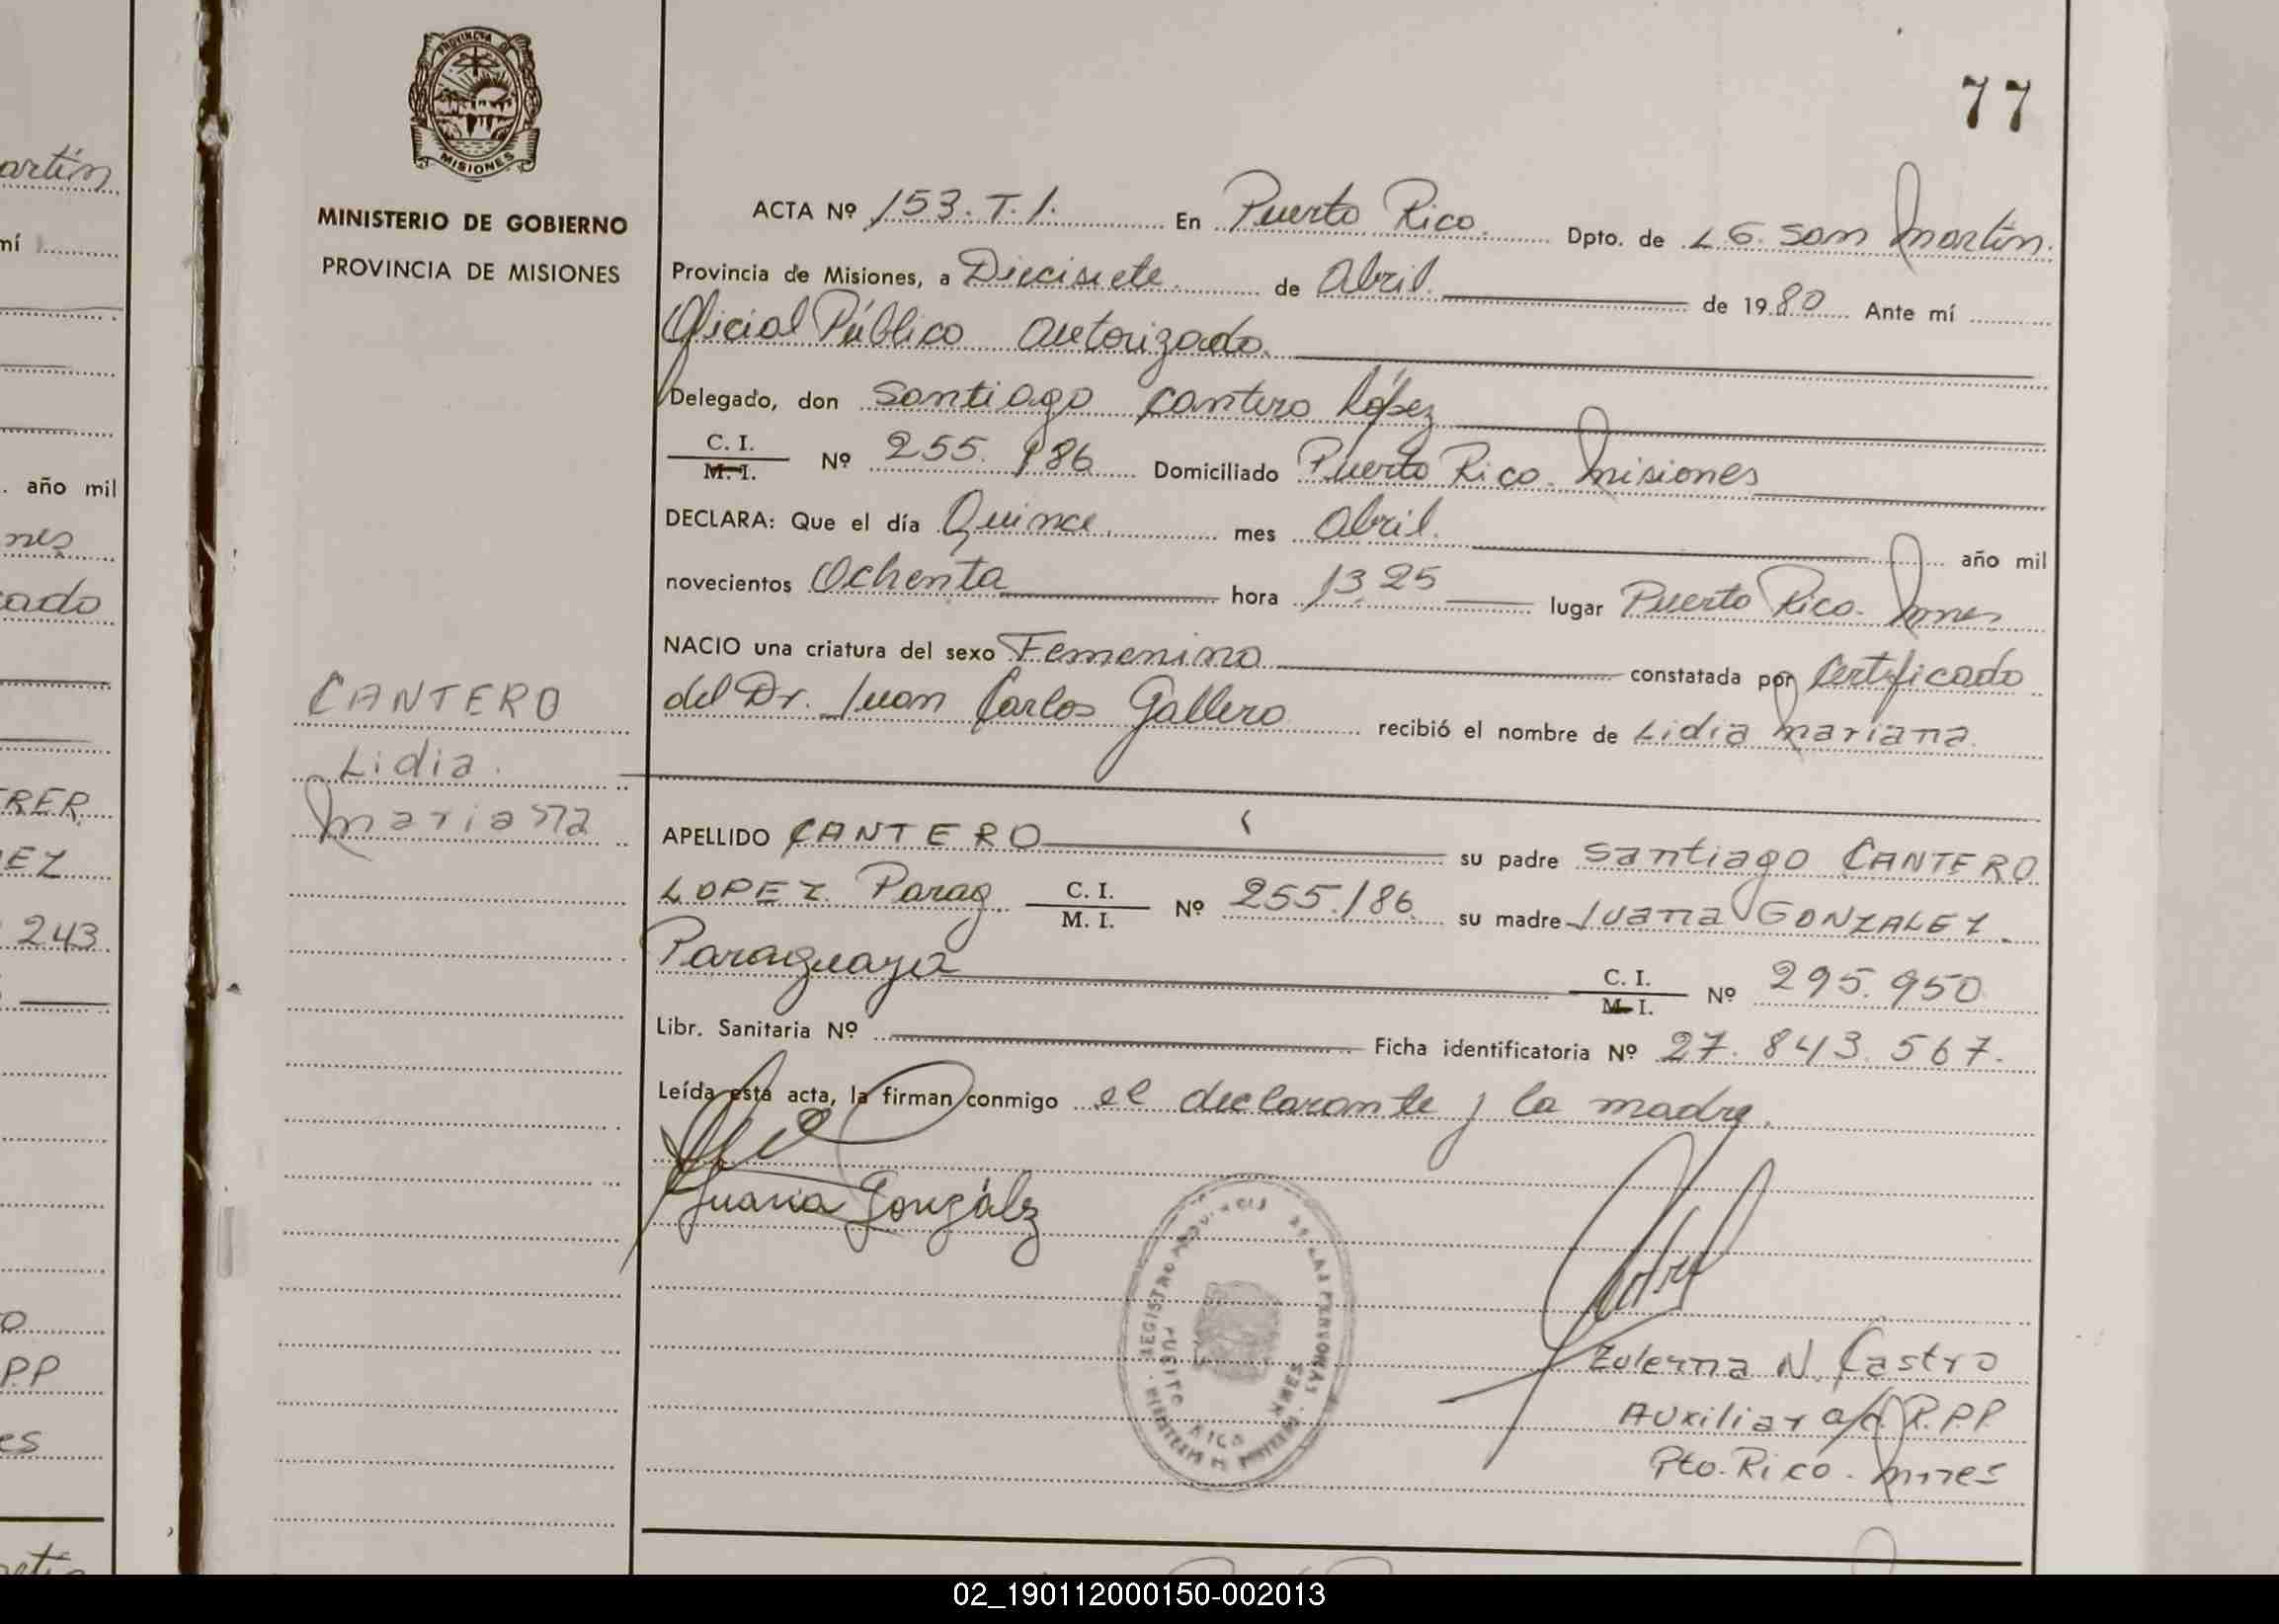 artín
mí
año mil
nes
cado
RER.
EZ
243
PP
es
PROVINCIA DE
MISIONES
MINISTERIO DE GOBIERNO
PROVINCIA DE MISIONES
CANTERO
Lidia.
Mariana
77
ACTA Nº 153. T. 1. En Puerto Rico. Dpto. de L. G. San Martín.
Provincia de Misiones, a Diecisiete. de Abril. de 1980 Ante mí
Oficial Público Autorizado.
Delegado, don Santiago Cantero López
C. I.
M. I. Nº 255.186 Domiciliado Puerto Rico. Misiones
DECLARA: Que el día Quince. mes Abril. año mil
novecientos Ochenta hora 13,25 lugar Puerto Rico. Mnes
NACIO una criatura del sexo Femenino constatada por Certificado
del Dr. Juan Carlos Gallero recibió el nombre de Lidia Mariana.
APELLIDO CANTERO su padre Santiago CANTERO
LOPEZ. Parag C. I.
M. I. Nº 255.186 su madre Juana GONZALEZ.
Paraguaya C. I.
M. I. Nº 295.950
Libr. Sanitaria Nº Ficha identificatoria Nº 27.843.567.
Leída esta acta, la firman conmigo el declarante y la madre.
Juana Gonzálz
REGISTRO PROVINCIAL DE LAS PERSONAS
PUERTO RICO MNES
Zulema N. Castro
Auxiliar a/c. R.P.P.
Pto. Rico. Mnes
02_190112000150-002013